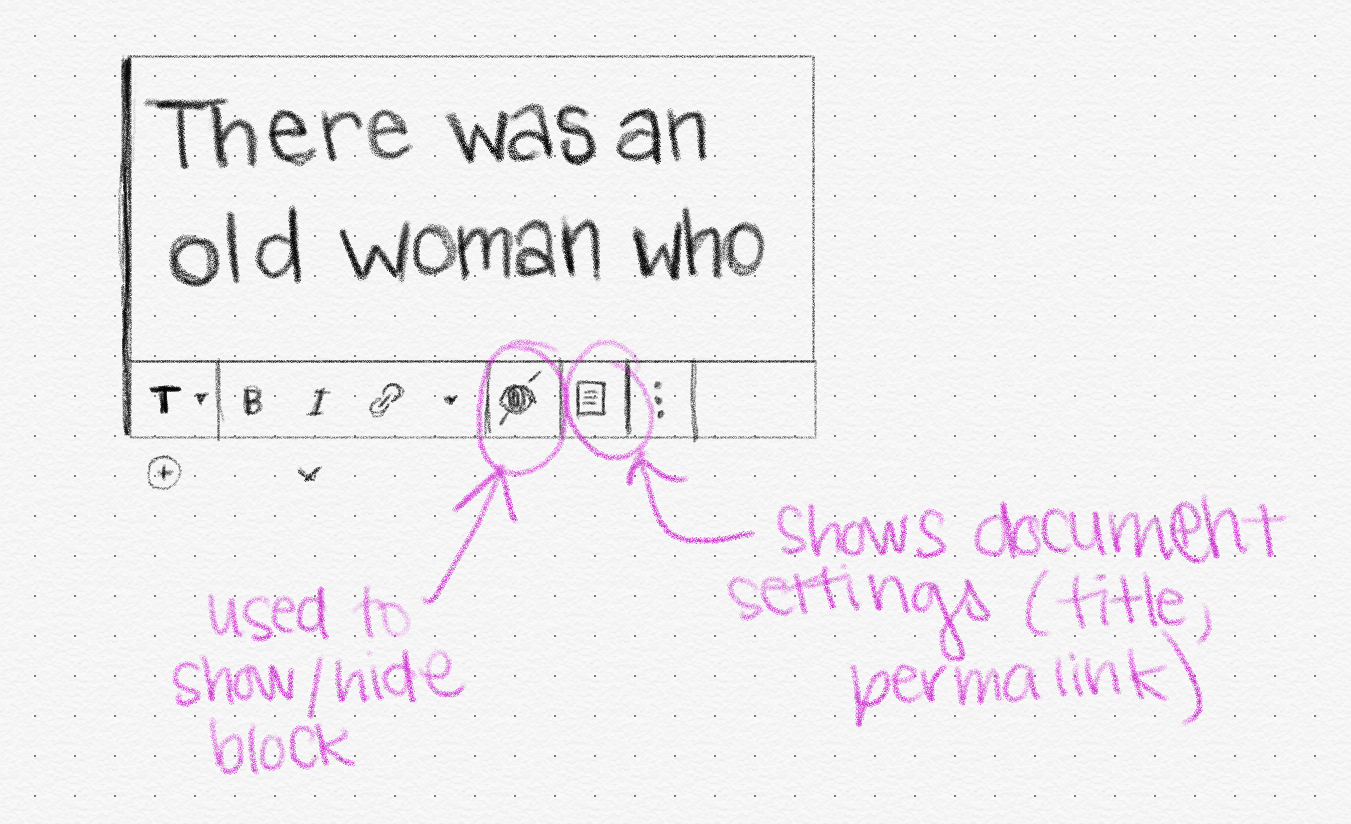 There was an
old woman who
T B I
used to
show/hide
block
shows document
settings (title,
permalink)